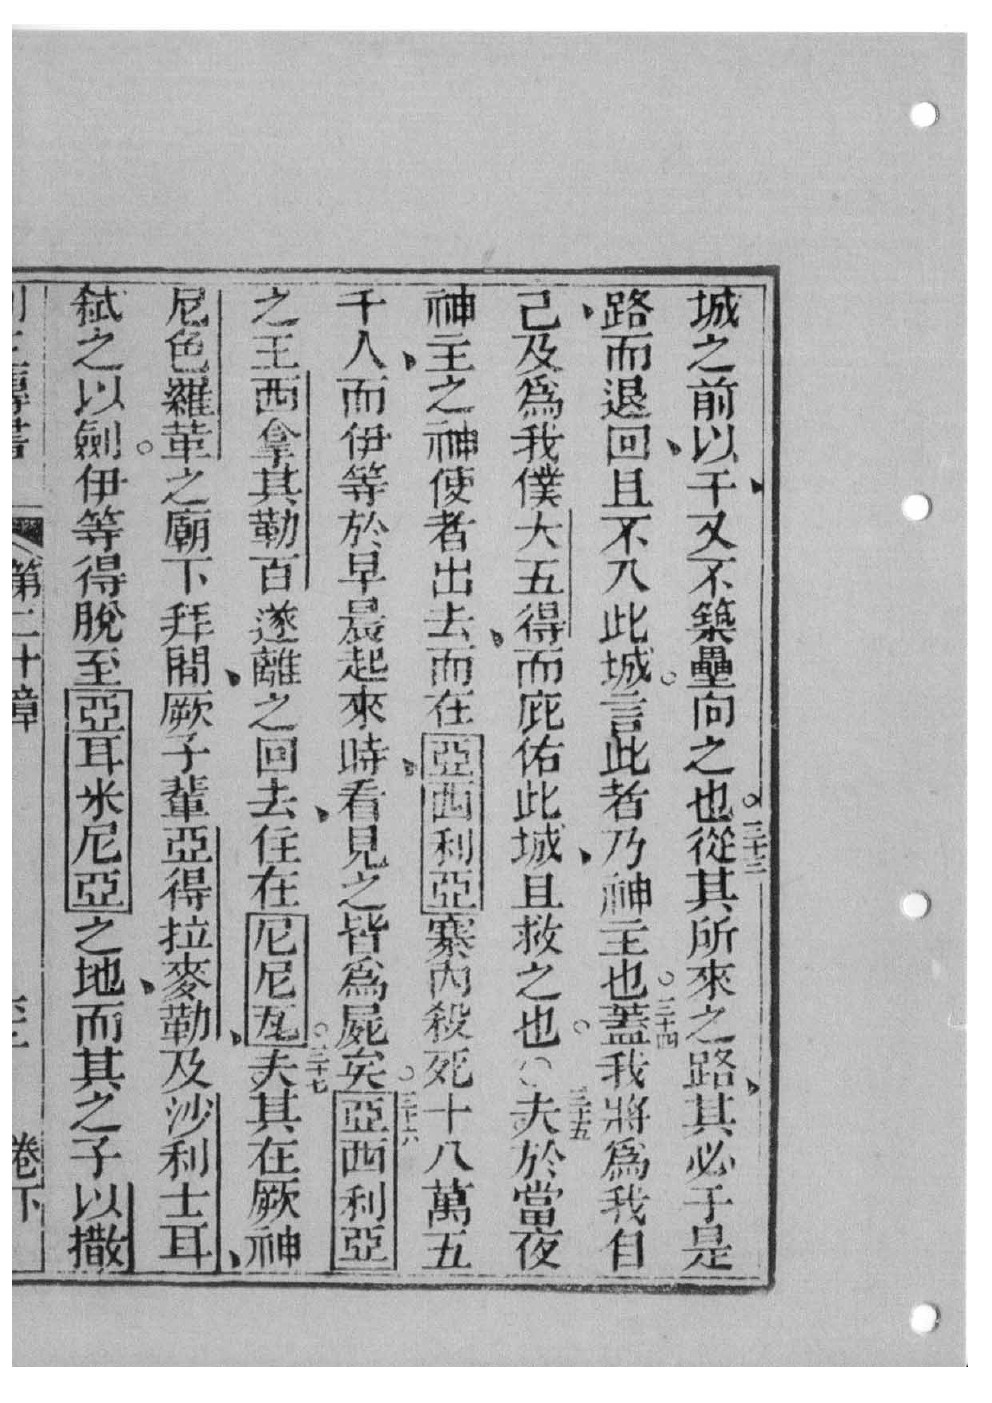 城之前以干又不築壘向之也三十三從其所來之路其必于是
路而退回且不入此城言此者乃神主也三十四蓋我將為我自
己及為我僕大五得而庇佑此城且救之也○三十五夫於當夜
神主之神使者出去而在亞西利亞寨內殺死十八萬五
千人而伊等於早晨起來時看見之皆為屍矣三十六亞西利亞
之王西拿其勒百遂離之回去住在尼尼瓦三十七夫其在厥神
尼色羅革之廟下拜間厥子輩亞得拉麥勒及沙利士耳
弒之以劍伊等得脫至亞耳米尼亞之地而其之子以撒
第二十章 卷下